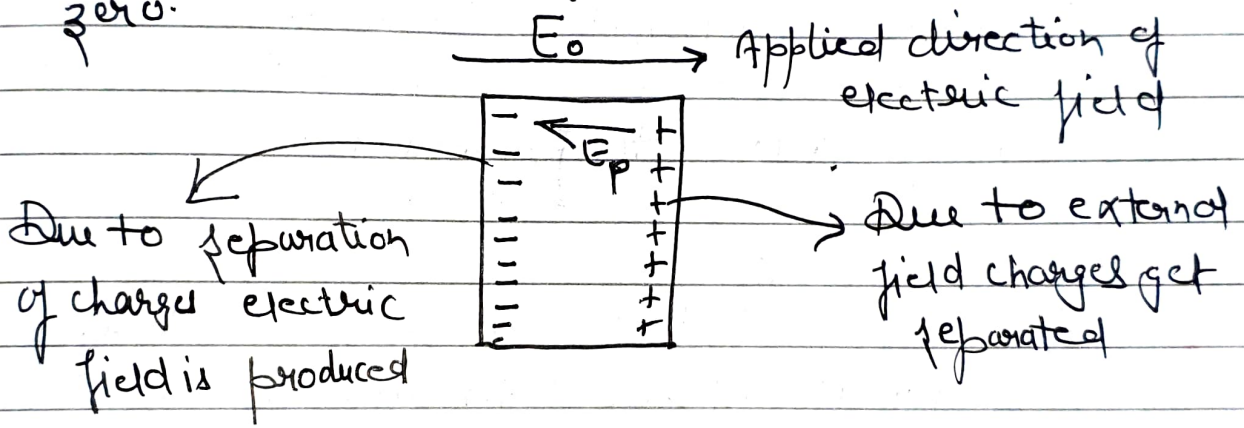 zero.
E₀
Applied direction of
electric field
− +
− Eₚ +
− +
− +
− +
− +
− +
−
Due to separation
of charges electric
field is produced
Due to external
field charges get
separated